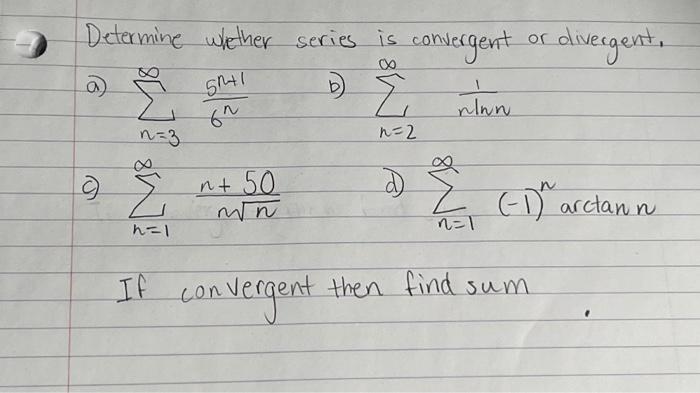 Determine whether series is convergent or divergent.
a) ∞ Σ n=3 5^{n+1} / 6^n b) ∞ Σ n=2 1 / n ln n
c) ∞ Σ n=1 n + 50 / n√n d) ∞ Σ n=1 (-1)^n arctan n
If convergent then find sum